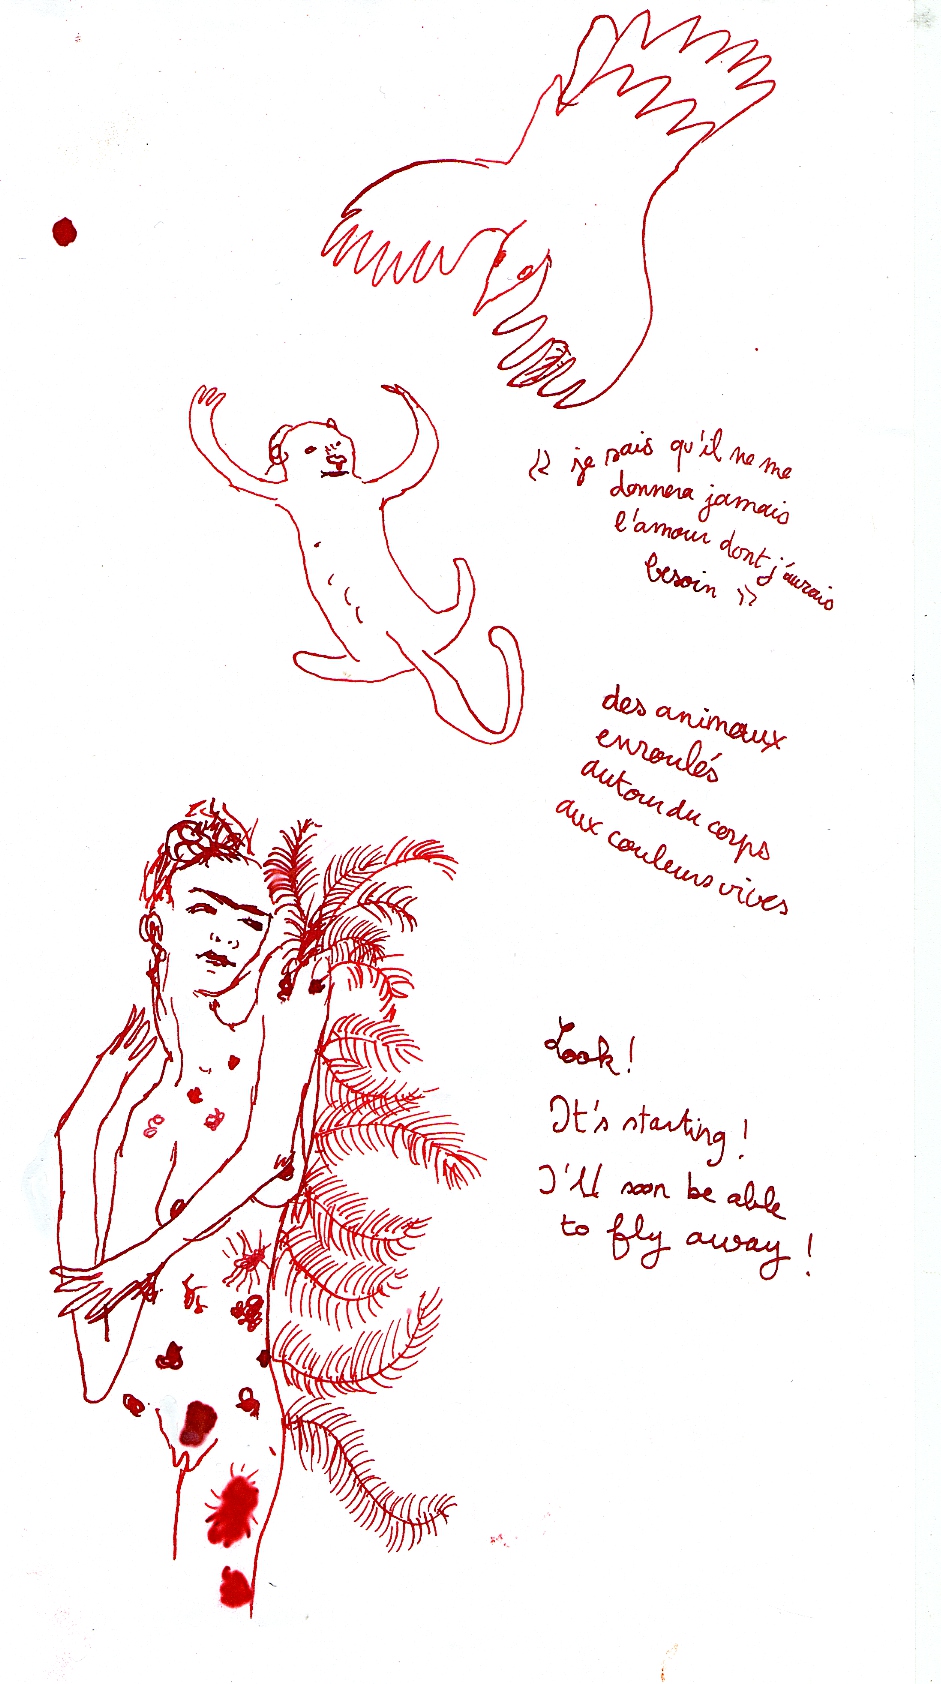 « je sais qu'il ne me
donnera jamais
l'amour dont j'aurais
besoin »
des animaux
enroulés
autour du corps
aux couleurs vives
Look !
It's starting !
I'll soon be able
to fly away !